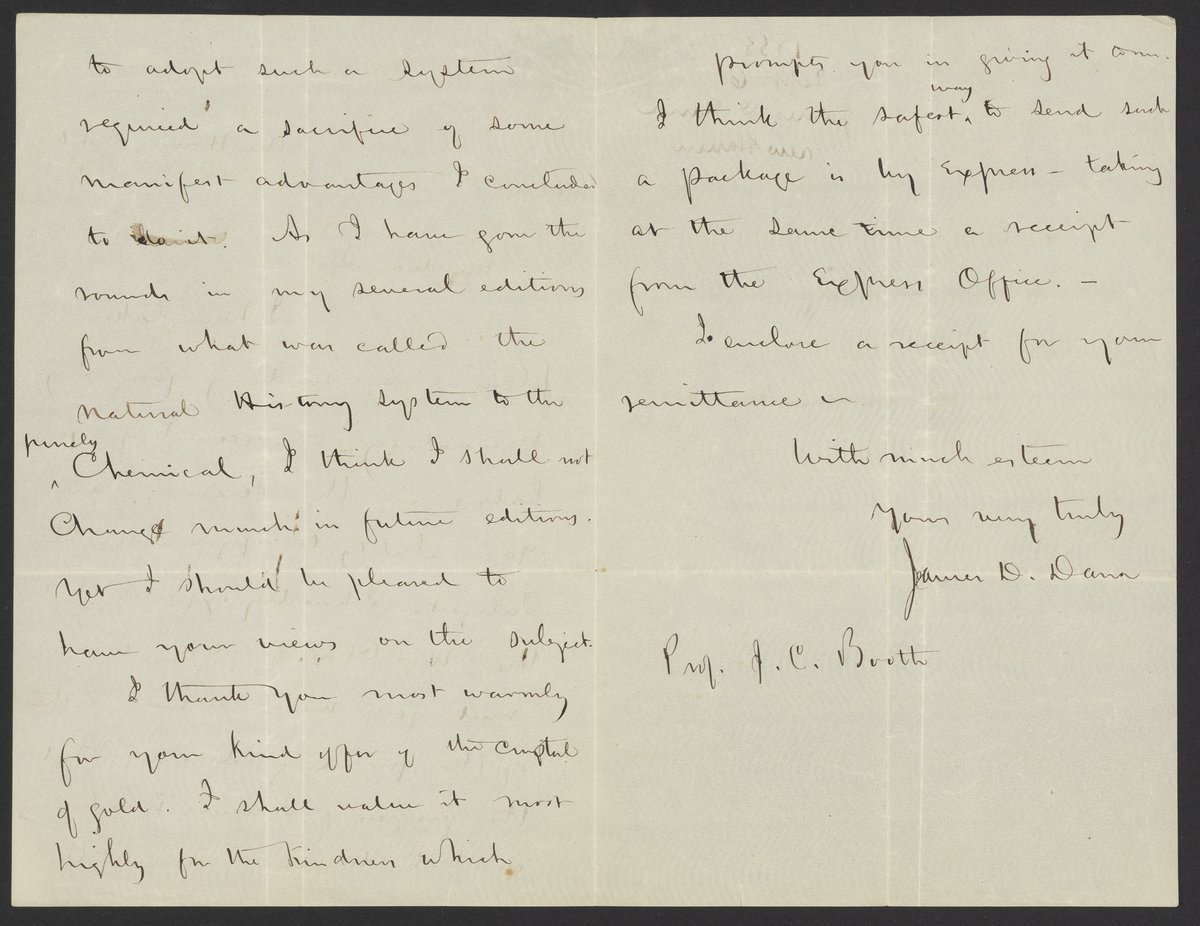 to adopt such a system
required a sacrifice of some
manifest advantages I concluded
to do it. As I have gone the
rounds in my several editions
from what was called the
Natural History System to the
purely
^ Chemical, I think I shall not
Change much in future editions.
Yet I should be pleased to
have your views on the subject.
I thank you most warmly
for your kind offer of the crystal
of gold. I shall value it most
highly for the kindness which
prompts you in giving it to me.
way
I think the safest ^ to send such
a package is by Express – taking
at the same time a receipt
from the Express Office. –
I enclose a receipt for your
remittance –
With much esteem
Yours very truly
James D. Dana
Prof. J. C. Booth